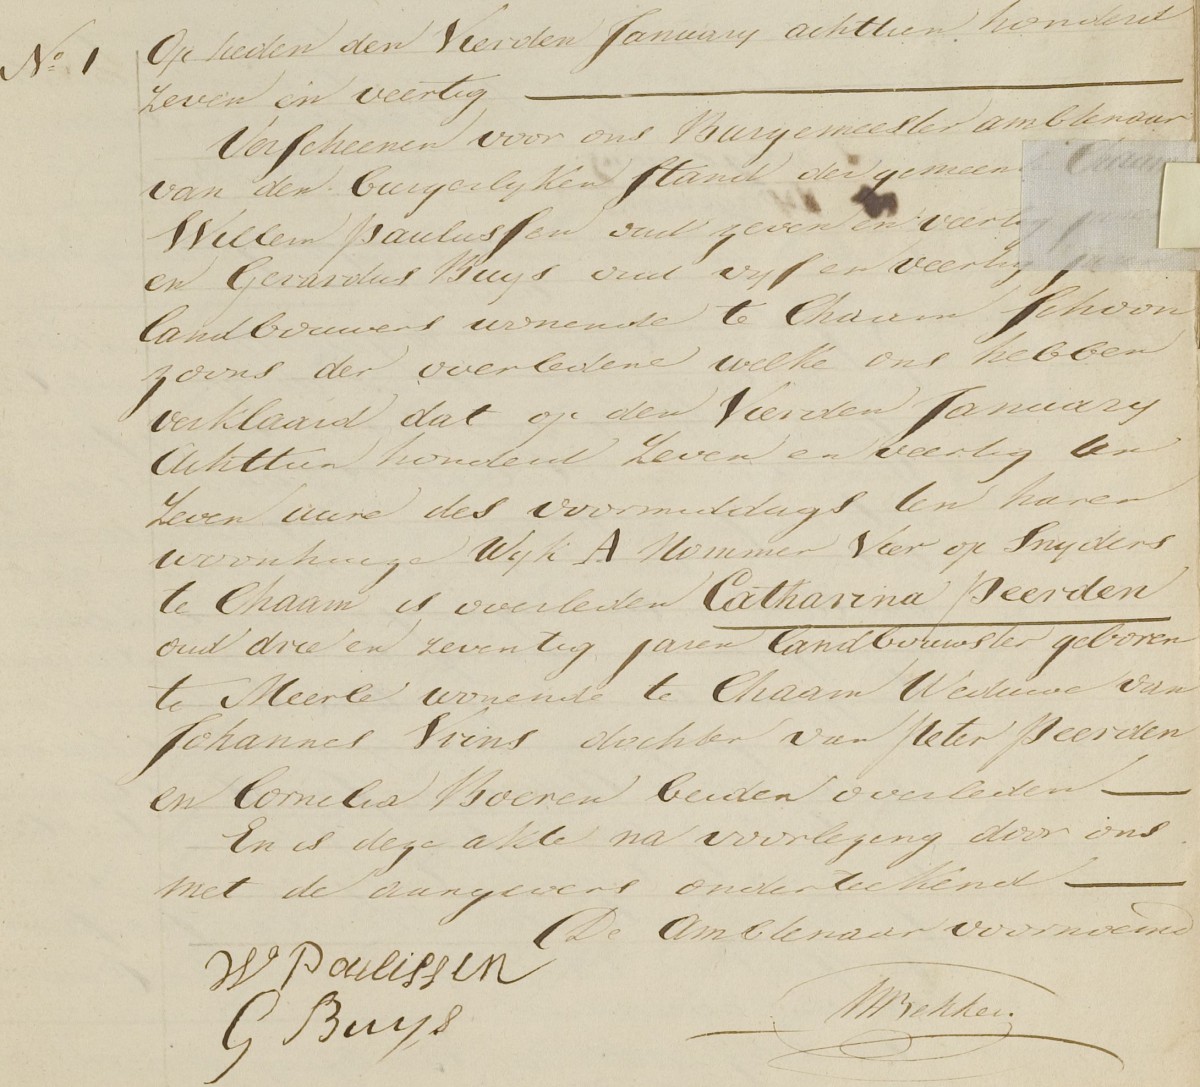 No 1 Op heden den Vierden January achttien honderd
zeven en veertig
Verscheenen voor ons Burgemeester ambtenaar
van den burgerlyken stand der gemeen Chaam
Willem Paulussen oud zeven en veertig jaren
en Gerardus Buys oud vyf en veertig jaren
landbouwers wonende te Chaam schoon
zoons der overledene welke ons hebben
verklaard dat op den Vierden January
Achttien honderd zeven en veertig ten
zeven uure des voormiddags ten haren
woonhuize Wyk A Nommer Vier op Snyders
te Chaam is overleden Catharina Peerden
oud drie en zeventig jaren landbouwster geboren
te Meerle wonende te Chaam Weduwe van
Johannes Vrins dochter van Peter Peerden
en Cornelia Boeren beiden overleden
En is deze akte na voorlezing door ons
met de aangevers onderteekend
De Ambtenaar voornoemd
W Paulissen
G Buys